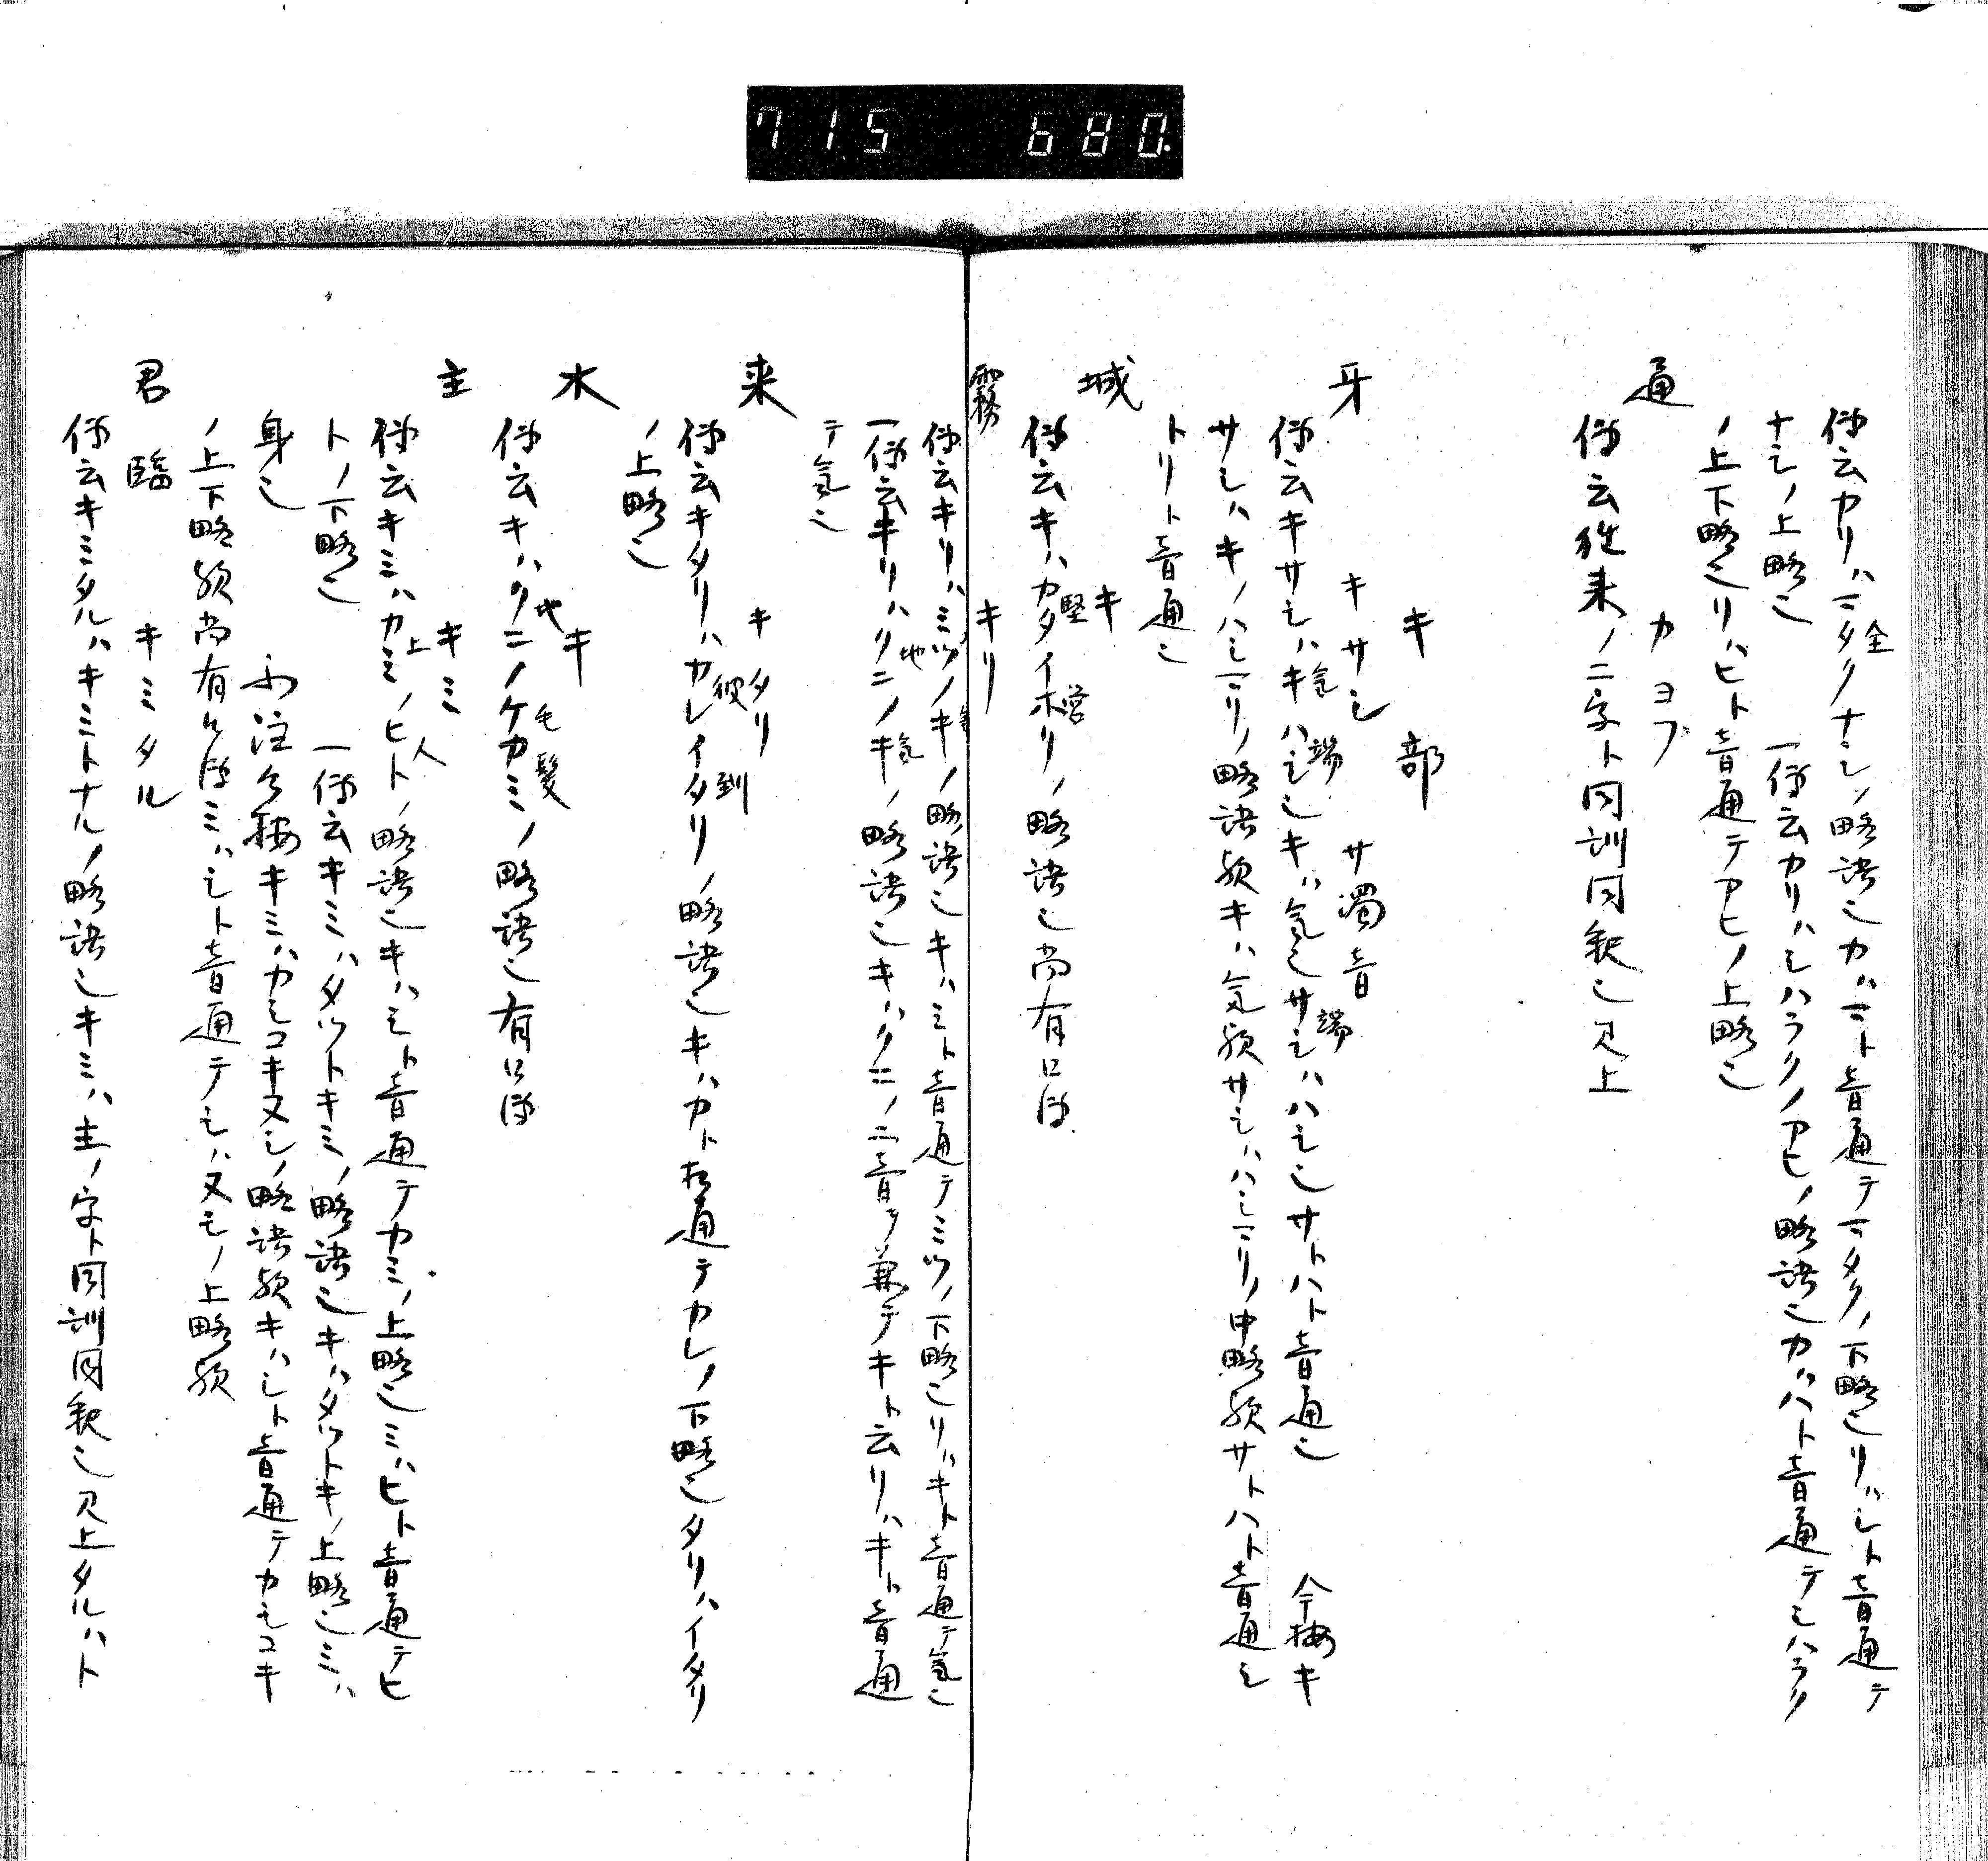 715 680.
伝云カリハマタクナシノ略語也カハマト音通テマタクノ下略也リハシト音通テ
ナシノ上略也 一伝云カリハシハラクノアヒノ略語也カハハト音通テシハラク
ノ上下略也リハヒト音通テアヒノ上略也
通 カヨフ
伝云往来ノ二字ト同訓同釈也見上
キ部
牙 キサシ サ濁音
伝云キサシハキハシ也キハ気也サシハハシ也サトハト音通也 今按キ
サシハキノハシマリノ略語歟キハ気歟サシハハシマリノ中略歟サトハト音通シ
トリト音通也
城 キ
伝云キハカタイホリノ略語也尚有口伝
霧 キリ
伝云キリハミツノキノ略語也キハミト音通テミツノ下略也リハキト音通テ気也
一伝云キリハクニノキノ略語也キハクニノ二音ヲ兼テキト云リハキト音通
テ気也
来 キタリ
伝云キタリハカレイタリノ略語也キハカト相通テカレノ下略也タリハイタリ
ノ上略也
木 キ
伝云キハクニノケカミノ略語也有口伝
主 キミ
伝云キミハカミノヒトノ略語也キハミト音通テカミノ上略也ミハヒト音通テヒ
トノ下略也 一伝云キミハタツトキミノ略語也キハタツトキノ上略也ミハ
身也 今按キミハカシコキヌシノ略語歟キハシト音通テカシコキ
ノ上下略歟尚有口伝ミハシト音通テシハヌシノ上略歟
君臨 キミタル
伝云キミタルハキミトナルノ略語也キミハ主ノ字ト同訓同釈也見上タルハト